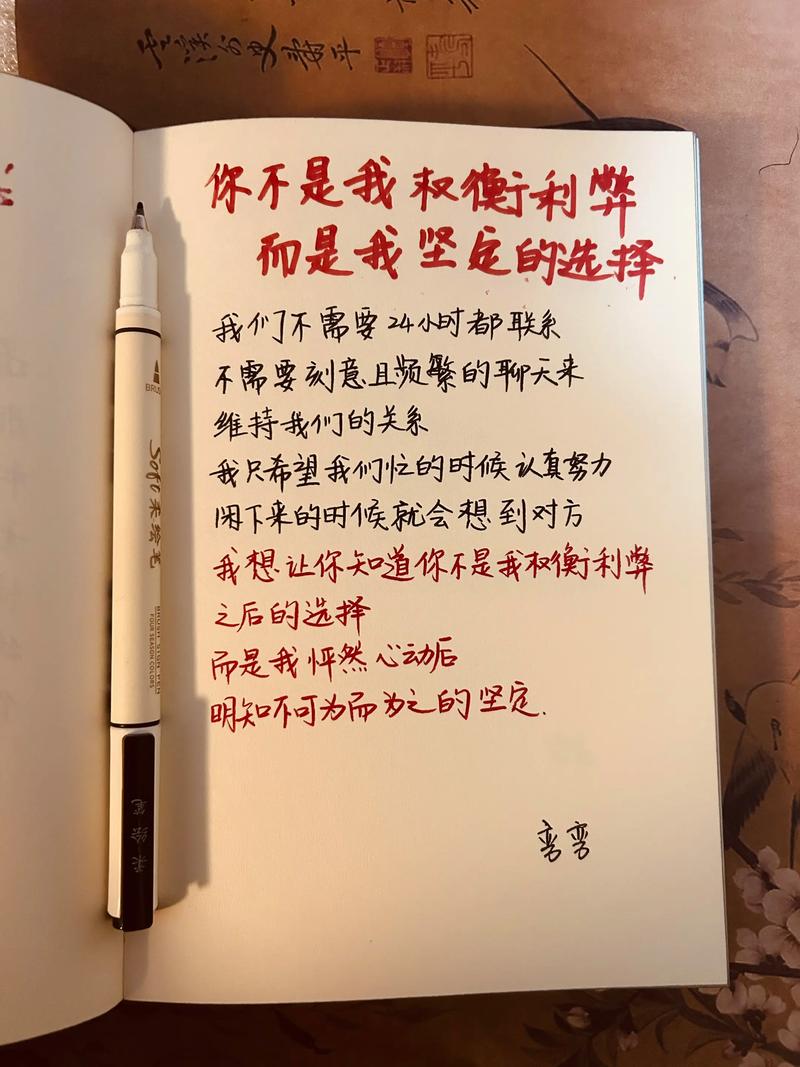 你不是我权衡利弊
而是我坚定的选择
我们不需要24小时都联系
不需要刻意且频繁的聊天来
维持我们的关系
我只希望我们忙的时候认真努力
闲下来的时候就会想到对方
我想让你知道你不是我权衡利弊
之后的选择
而是我怦然心动后
明知不可为而为之的坚定.
弯弯
Soft 柔绘笔
BRUSH SIGN PEN
FOUR SEASON COLORS
柔绘笔